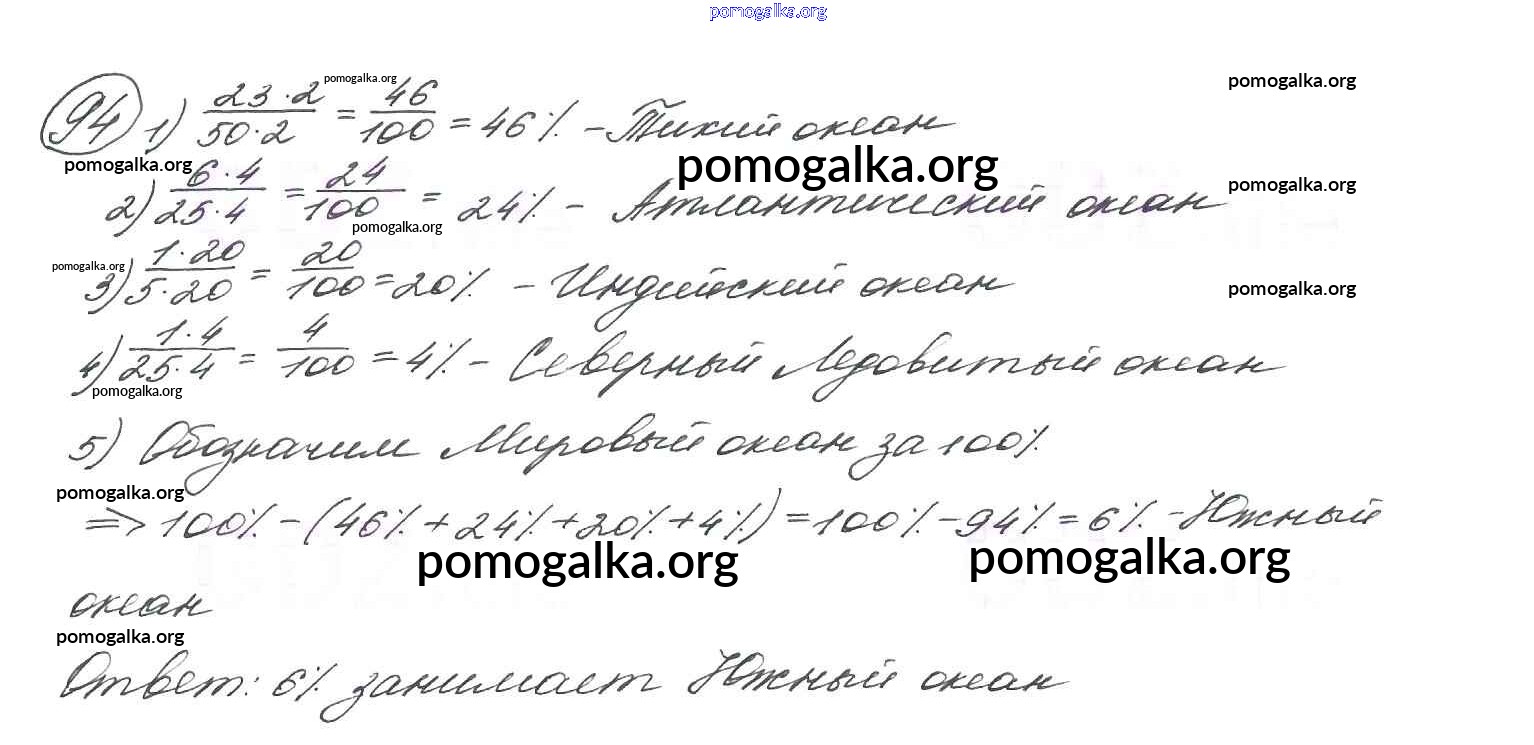 pomogalka.org
pomogalka.org
pomogalka.org
94 1) 23·2/50·2 = 46/100 = 46% - Тихий океан
pomogalka.org
pomogalka.org
pomogalka.org
2) 6·4/25·4 = 24/100 = 24% - Атлантический океан
pomogalka.org
pomogalka.org
3) 1·20/5·20 = 20/100 = 20% - Индийский океан
pomogalka.org
4) 1·4/25·4 = 4/100 = 4% - Северный Ледовитый океан
pomogalka.org
5) Обозначим Мировый океан за 100%
pomogalka.org
=> 100% - (46% + 24% + 20% + 4%) = 100% - 94% = 6% - Южный
pomogalka.org
pomogalka.org
океан
pomogalka.org
Ответ: 6% занимает Южный океан